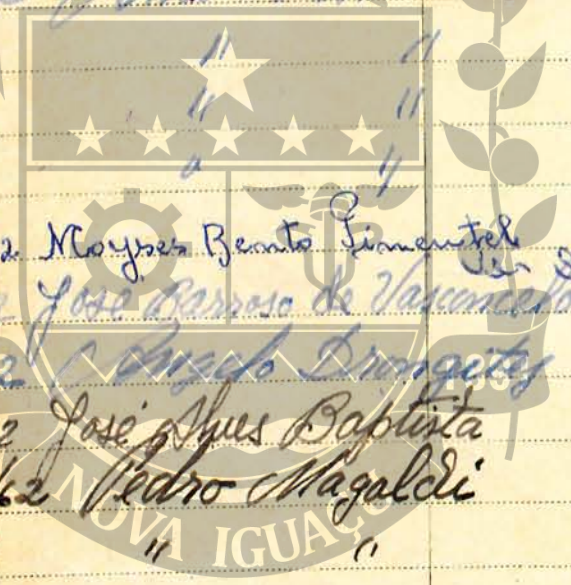 " "
" "
" "
2 Moyses Bento Pimentel
José Barroso de Vasconcelo
2 Angelo Drongites
2 José Alves Baptista
62 Pedro Magaldi
" "
NOVA IGUAÇU